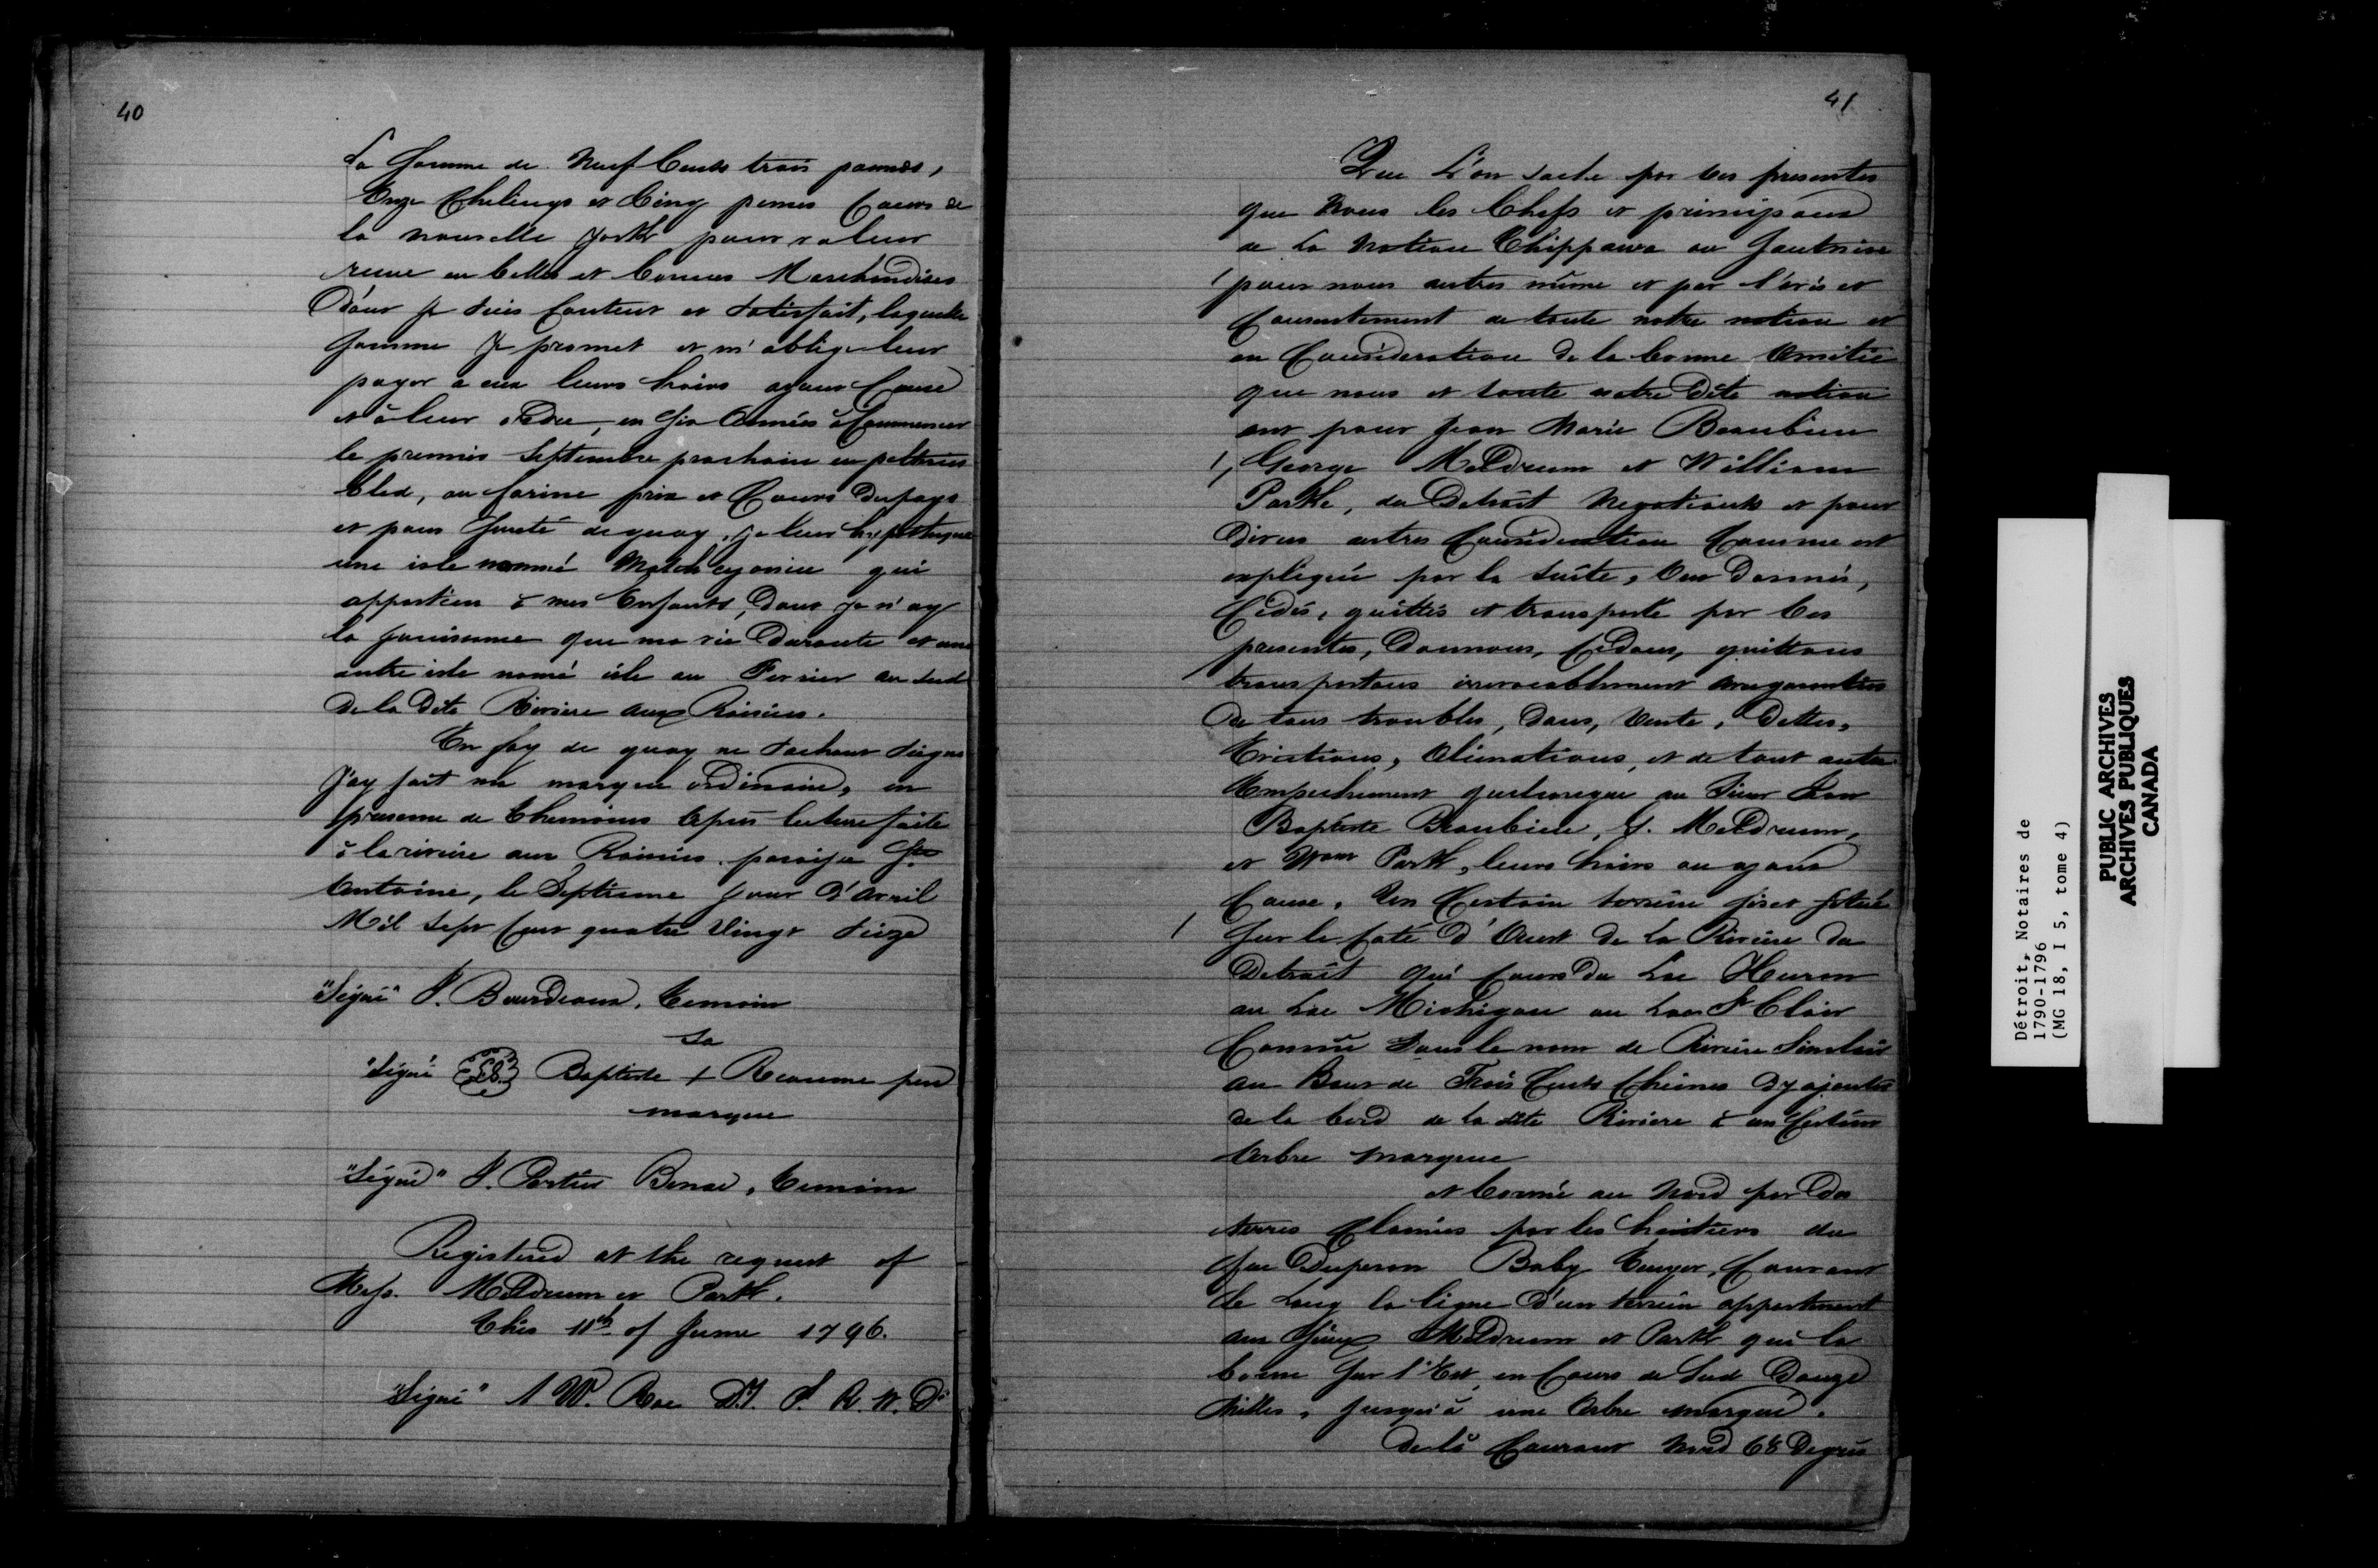 40
La Somme de Neuf Cents trois pounds,
Onze Chelings et Cinq pences Cours de
la nouvelle york pour valeur
recue en belles et bonnes Marchandises
Dont je suis Content et satisfait, laquelle
somme Je promet et m'oblige leur
payer a eux leurs hoirs ayans Cause
et à leur ordre, en six Années à Commencer
le premier septembre prochain en peltries
bled, ou farine prix et Cours du pays
et pour sureté de quoy, je leur hypotheque
une isle nommé qui
appartien à mes Enfants, dont je n'ay
la jouissance que ma vie Durante et une
autre isle nomé isle au au sud
de la dite Riviere aux Raisins.
En foy de quoy ne sachant signer
J'ay fait ma marque ordinaire, en
presence de themoins apres lecture faite
à la riviere aux Raisins paroisse St
Antoine, le Septieme jour d'avril
Mil sept Cent quatre Vingt Seize
"Signé" J. Bourdeaux, temoin
sa
"Signé Baptiste + Reaume pere
marque
"Signé" J. Portier Benac, temoin
Registered at the request of
Mess. Meldrum et Park.
this 11th of June 1796.
"Signé" W. Roe
41
Que L'on sache par Ces presentes
que Nous les Chefs et principaux
de La Nation Chippawa ou Sauteuse
pour nous autres même et par l'avis et
Consentement de toute notre nation et
en Consideration de la bonne Amitié
que nous et toute notre Dite nation
ont pour Jean Marie Beaubien
George Meldrum et William
Park, du Detroit Negotiants et pour
Divers autres Consideration Comme est
expliqué par la suite, Ont Donnés,
Cédés, quittés et transporté par Ces
presentes, Donnons, Cédons, quittons
transportons irrevocablement
De tous troubles, Dons, Vente, Dettes,
Evictions, Alienations, et de tout autre
Empechement quelconque au Sieur Jean
Baptiste Beaubien, G. Meldrum,
et Wm Park, leurs hoirs ou ayans
Cause, Un Certain terrein sis et situé
Sur le Coté d'Ouest de La Riviere du
Detroit qui Cours du Lac Huron
au Lac Michigan au Lac St Clair
Connu sous le nom de Riviere Sinclair
au Bout de Trois Cents Chênes
de la bord de la dite Riviere à un Certain
Arbre marquee
et borné au Nord par des
terres Clamées par les heritiers du
feu Duperon Baby Ecuyer, Courant
le Long la ligne D'un terrein appartenant
aux Sieurs Meldrum et Park qui la
borne Sur l'Est en Cours de Sud Douze
Milles, jusqu'à une Arbre marqué.
delà Courant Nord 68 Degrés
Détroit, Notaires de
1790-1796
(MG 18, I 5, tome 4)
PUBLIC ARCHIVES
ARCHIVES PUBLIQUES
CANADA